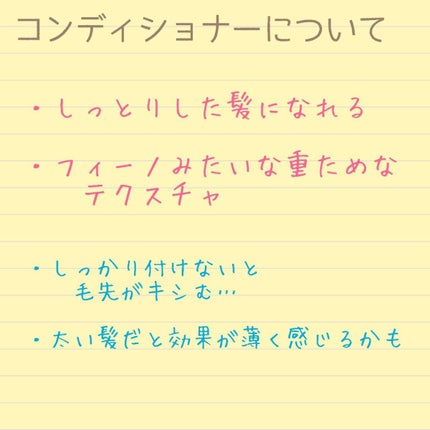 コンディショナーについて
・しっとりした髪になれる
・フィーノみたいな重ためな
テクスチャ
・しっかり付けないと
毛先がキシむ…
・太い髪だと効果が薄く感じるかも